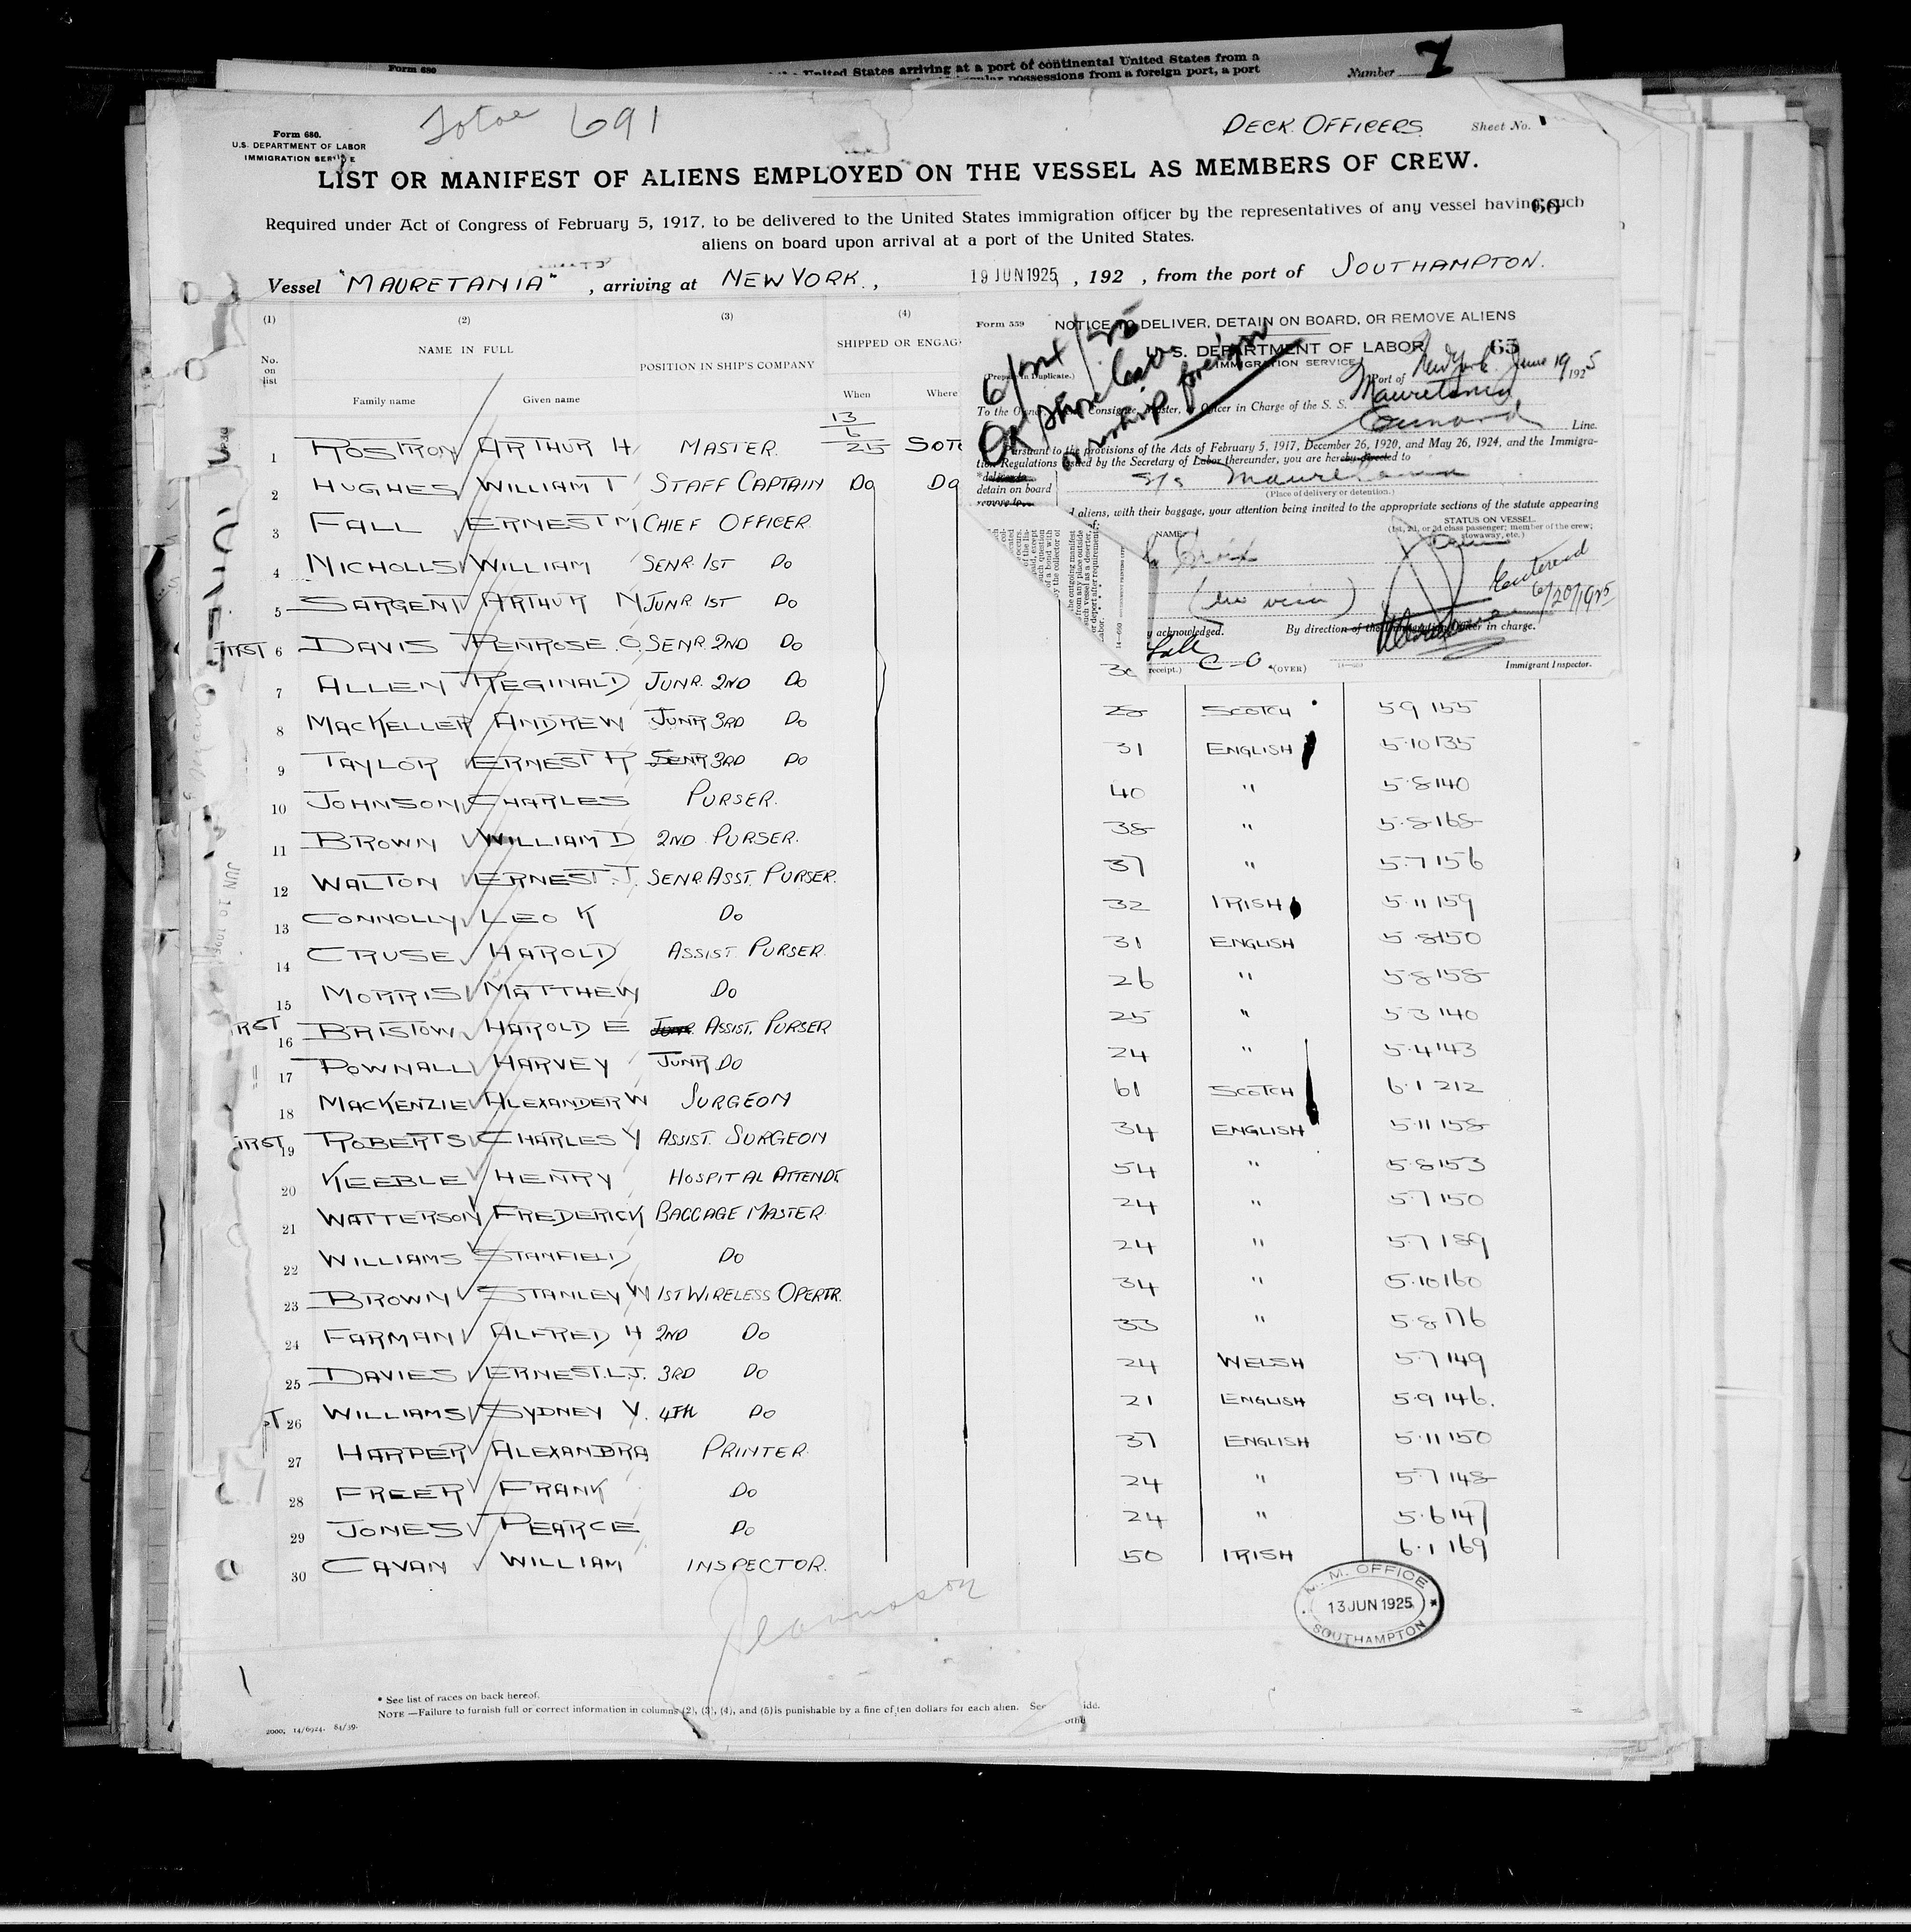 Form 680
United States arriving at a port of continental United States from a
possessions from a foreign port, a port
Number 7
691
DECK OFFICERS.
Sheet No. 1
Form 680.
U.S. DEPARTMENT OF LABOR
IMMIGRATION SERVICE
LIST OR MANIFEST OF ALIENS EMPLOYED ON THE VESSEL AS MEMBERS OF CREW.
66
Required under Act of Congress of February 5, 1917, to be delivered to the United States immigration officer by the representatives of any vessel having such
aliens on board upon arrival at a port of the United States.
Vessel "MAURETANIA", arriving at NEW YORK., 19 JUN 1925, 192 , from the port of SOUTHAMPTON.
(1) (2) (3) (4)
No. on list
NAME IN FULL
POSITION IN SHIP'S COMPANY
SHIPPED OR ENGAG
Family name Given name When Where
1 ROSTRON ARTHUR H MASTER. 13/6/25 SOTO
2 HUGHES WILLIAM T STAFF CAPTAIN DO DO
3 FALL ERNEST M CHIEF OFFICER
4 NICHOLLS WILLIAM SENR. 1ST DO
5 SARGENT ARTHUR N JUNR 1ST DO
6 DAVIS PENROSE. O SENR. 2ND DO
7 ALLEN REGINALD JUNR. 2ND DO
8 MACKELLER ANDREW JUNR 3RD DO 28 SCOTCH 5 9 155
9 TAYLOR ERNEST R SENR 3RD DO 31 ENGLISH 5·10 135
10 JOHNSON CHARLES PURSER. 40 " 5·8 140
11 BROWN WILLIAM D 2ND PURSER. 38 " 5·8 168
12 WALTON ERNEST.J. SENR. ASST. PURSER. 37 " 5·7 156
13 CONNOLLY LEO K DO 32 IRISH 5·11 159
14 CRUSE HAROLD ASSIST. PURSER. 31 ENGLISH 5·8 150
15 MORRIS MATTHEW DO 26 " 5·8 158
16 BRISTOW HAROLD E JUNR. ASSIST. PURSER 25 " 5·3 140
17 POWNALL HARVEY JUNR DO 24 " 5·4 143
18 MACKENZIE ALEXANDER W SURGEON 61 SCOTCH 6·1 212
19 ROBERTS CHARLES Y ASSIST. SURGEON 34 ENGLISH 5·11 158
20 KEEBLE HENRY HOSPITAL ATTENDT. 54 " 5·8 153
21 WATTERSON FREDERICK BAGGAGE MASTER 24 " 5·7 150
22 WILLIAMS STANFIELD DO 24 " 5·7 189
23 BROWN STANLEY W 1ST WIRELESS OPERTR. 34 " 5·10 160
24 FARMAN ALFRED H 2ND DO 33 " 5·8 176
25 DAVIES ERNEST.L.J. 3RD DO 24 WELSH 5·7 149
26 WILLIAMS SYDNEY V. 4TH DO 21 ENGLISH 5·9 146.
27 HARPER ALEXANDRA PRINTER. 37 ENGLISH 5·11 150
28 FREER FRANK DO 24 " 5·7 148
29 JONES PEARCE DO 24 " 5·6 147
30 CAVAN WILLIAM INSPECTOR. 50 IRISH 6·1 169
Form 559
NOTICE TO DELIVER, DETAIN ON BOARD, OR REMOVE ALIENS
U. S. DEPARTMENT OF LABOR 65
IMMIGRATION SERVICE
(Prepare in Duplicate.)
Port of New York June 19 1925
To the Owner, Consignee, Master, or Officer in Charge of the S. S. Mauretania
Cunard Line.
Pursuant to the provisions of the Acts of February 5, 1917, December 26, 1920, and May 26, 1924, and the Immigra-
tion Regulations issued by the Secretary of Labor thereunder, you are hereby directed to
*deliver to
detain on board
remove to
S/s Mauretania
(Place of delivery or detention.)
aliens, with their baggage, your attention being invited to the appropriate sections of the statute appearing
NAME
STATUS ON VESSEL.
(1st, 2d, or 3d class passenger; member of the crew; stowaway, etc.)
(no visa)
6/20/1925
y acknowledged.
By direction of the Immigration Officer in charge.
Fall C-O
receipt.) (OVER)
Immigrant Inspector.
M. M. OFFICE
13 JUN 1925
SOUTHAMPTON
* See list of races on back hereof.
NOTE.—Failure to furnish full or correct information in columns (2), (3), (4), and (5) is punishable by a fine of ten dollars for each alien.
2000, 14/6924. 84/39.